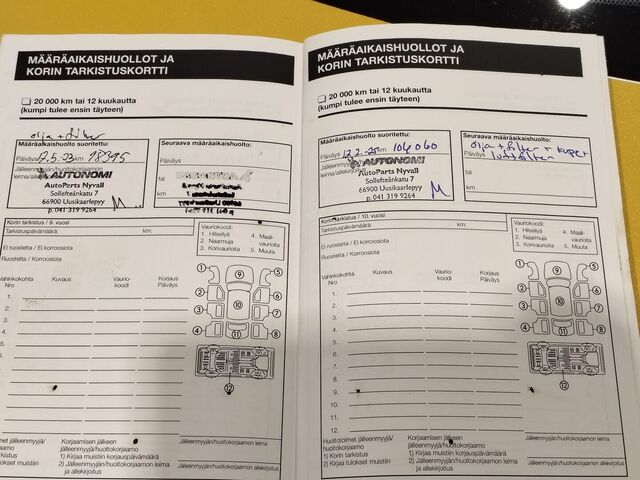 MÄÄRÄAIKAISHUOLLOT JA
KORIN TARKISTUSKORTTI
20 000 km tai 12 kuukautta
(kumpi tulee ensin täyteen)
olja + filter
Määräaikaishuolto suoritettu:
Päiväys 12.5.-23 km 98395
Jälleenmyyjän/huoltokorjaamon
leima
AUTONOMI
AutoParts Nyvall
Sollefteånkatu 7
66900 Uusikaarlepyy
p. 041 319 9264
Seuraava määräaikaishuolto:
Päiväys
tai
km
Korin tarkistus / 9. vuosi
Tarkistuspäivämäärä: km:
Ei ruostetta / Ei korroosiota
Ruostetta / Korroosiota
Vauriokoodi:
1. Hilseilyä
2. Naarmuja
3. Korivaurioita
4. Maali-
vaurioita
5. Muuta
Vahinkokohta
Nro
Kuvaus
Vaurio-
koodi
Korjaus
Päiväys
1.
2.
3.
4.
5.
1 2 3 4 5 6 7 8 9 10 11 12
jälleenmyyjä/
huoltokorjaamo
1) Korin tarkistus
Korjaamisen jälkeen
jälleenmyyjä/huoltokorjaamo
1) Kirjaa muistiin korjauspäivämäärä
2) Jälleenmyyjän/huoltokorjaamon leima
ja allekirjoitus
Jälleenmyyjän/huoltokorjaamon leima
Jälleenmyyjän/huoltokorjaamon allekirjoitus
MÄÄRÄAIKAISHUOLLOT JA
KORIN TARKISTUSKORTTI
20 000 km tai 12 kuukautta
(kumpi tulee ensin täyteen)
Määräaikaishuolto suoritettu:
Päiväys 12.2.-25 km 106060
AUTONOMI
AutoParts Nyvall
Sollefteånkatu 7
66900 Uusikaarlepyy
p. 041 319 9264
Seuraava määräaikaishuolto:
olja + filter + kupef
luftfilter
Päiväys
tai
km
Korin tarkistus / 10. vuosi
Tarkistuspäivämäärä: km:
Ei ruostetta / Ei korroosiota
Ruostetta / Korroosiota
Vauriokoodi:
1. Hilseilyä
2. Naarmuja
3. Korivaurioita
4. Maali-
vaurioita
5. Muuta
Vahinkokohta
Nro
Kuvaus
Vaurio-
koodi
Korjaus
Päiväys
1.
2.
3.
4.
5.
6.
7.
8.
9.
10.
11.
12.
1 2 3 4 5 6 7 8 9 10 11 12
Huoltotoimet jälleenmyyjä/
huoltokorjaamo
1) Korin tarkistus
2) Kirjaa tulokset muistiin
Korjaamisen jälkeen
jälleenmyyjä/huoltokorjaamo
1) Kirjaa muistiin korjauspäivämäärä
2) Jälleenmyyjän/huoltokorjaamon leima
ja allekirjoitus
Jälleenmyyjän/huoltokorjaamon leima
Jälleenmyyjän/huoltokorjaamon allekirjoitus